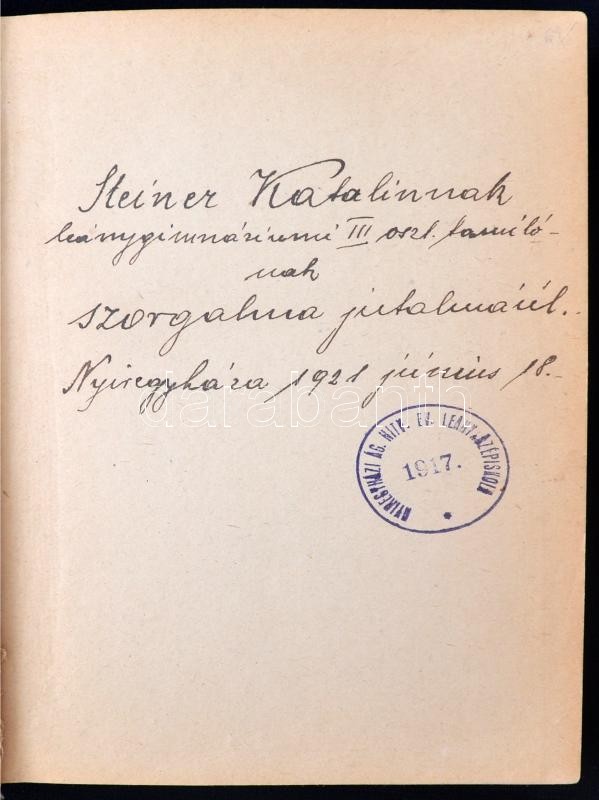 Steiner Katalinnak
leánygimnáziumi III oszt. tanuló-
nak
szorgalma jutalmáúl.
Nyiregyháza 1921 június 18.-
NYIREGYHÁZI ÁG. HITV. EV. LEÁNYKÖZÉPISKOLA
1917.
darabanth